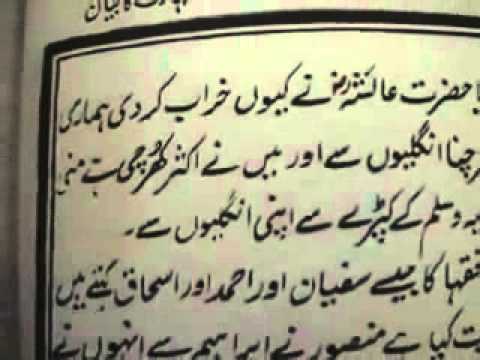 کا بیان
حضرت عائشہ رض نے کیوں خراب کر دی ہماری
چنا انگلیوں سے اور میں نے اکثر کھرچی ہے منی
وسلم کے کپڑے سے اپنی انگلیوں سے۔
فقہا کا جیسے سفیان اور احمد اور اسحاق کہتے ہیں
کیا ہے منصور نے ابراہیم سے انہوں نے